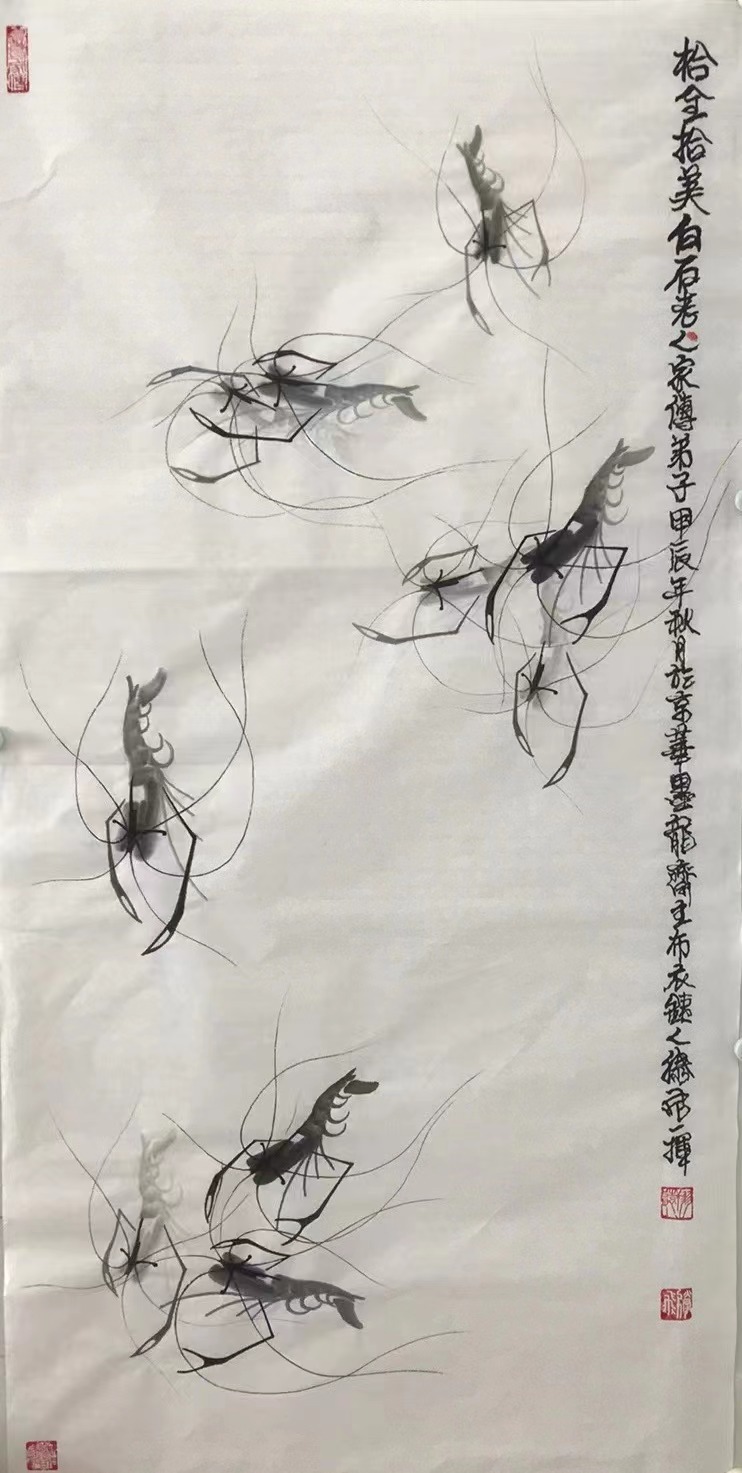 拾全拾美白石老人家傳弟子甲辰年秋月於京華墨龍齋主布衣鏽人繡飛一揮